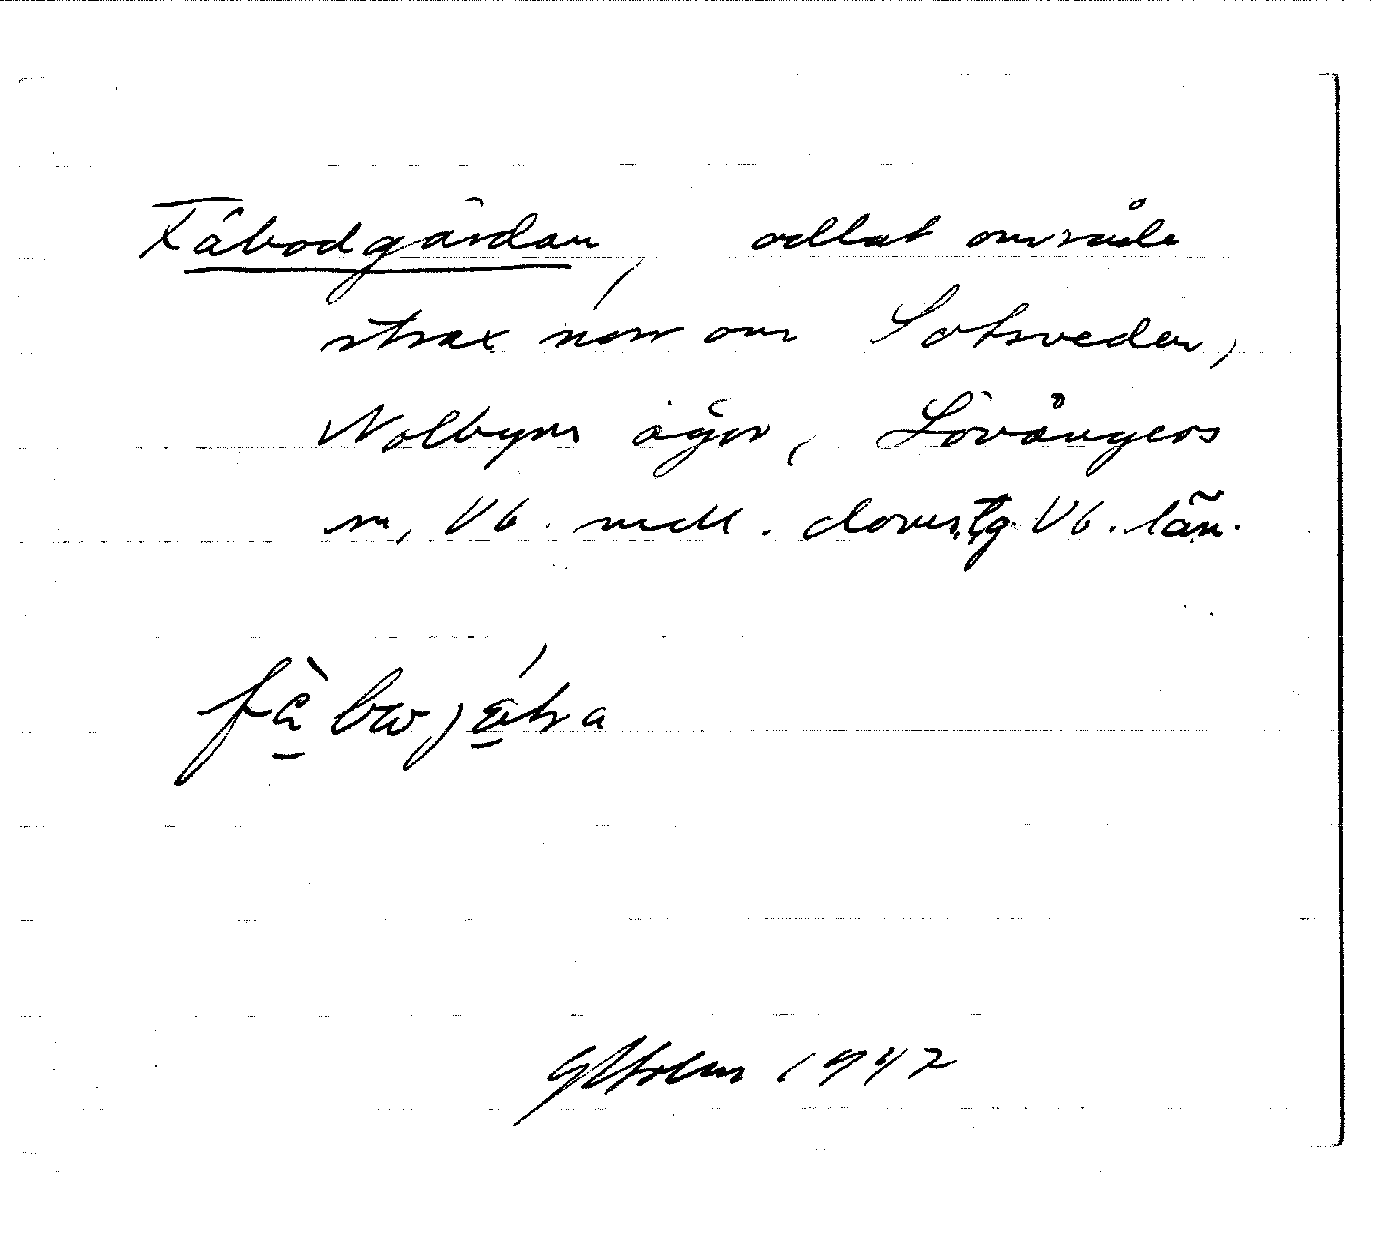 Fäbodgärdan, odlat område
strax norr om Sotsveden,
Nolbyns ägor, Lövångers
sn, Vb. mell. domstg Vb. län.
Holm 1942